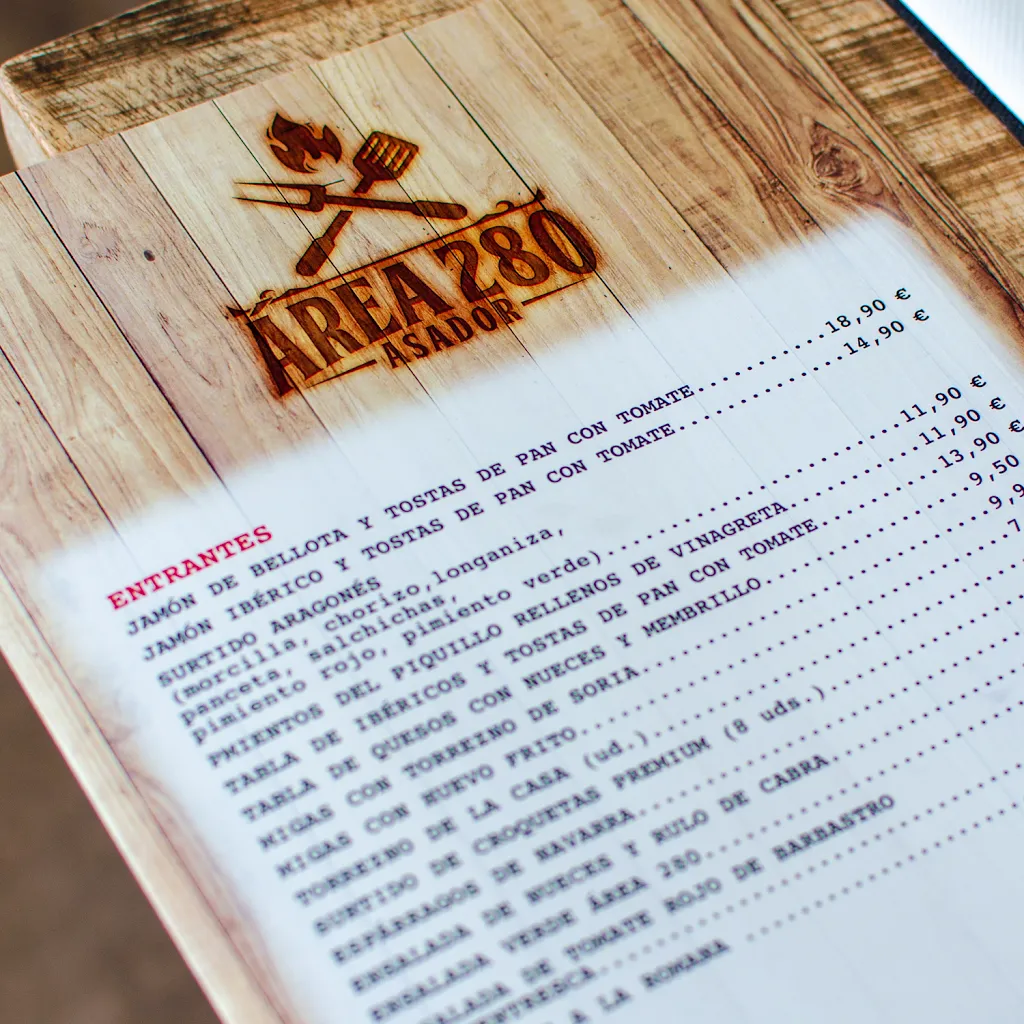 ÁREA 280
ASADOR
ENTRANTES
JAMÓN DE BELLOTA Y TOSTAS DE PAN CON TOMATE..........18,90 €
JAMÓN IBÉRICO Y TOSTAS DE PAN CON TOMATE.............14,90 €
SURTIDO ARAGONÉS
(morcilla, chorizo,longaniza,
panceta, salchichas,
pimiento rojo, pimiento verde)......................11,90 €
PMIENTOS DEL PIQUILLO RELLENOS DE VINAGRETA..........11,90 €
TABLA DE IBÉRICOS Y TOSTAS DE PAN CON TOMATE.........13,90 €
TABLA DE QUESOS CON NUECES Y MEMBRILLO...............9,50
MIGAS CON TORREZNO DE SORIA..........................9,9
MIGAS CON HUEVO FRITO................................7
TORREZNO DE LA CASA (ud.)............................
SURTIDO DE CROQUETAS PREMIUM (8 uds.)................
ESPÁRRAGOS DE NAVARRA................................
ENSALADA DE NUECES Y RULO DE CABRA...................
ENSALADA VERDE ÁREA 280..............................
DE TOMATE ROJO DE BARBASTRO
A LA ROMANA ................